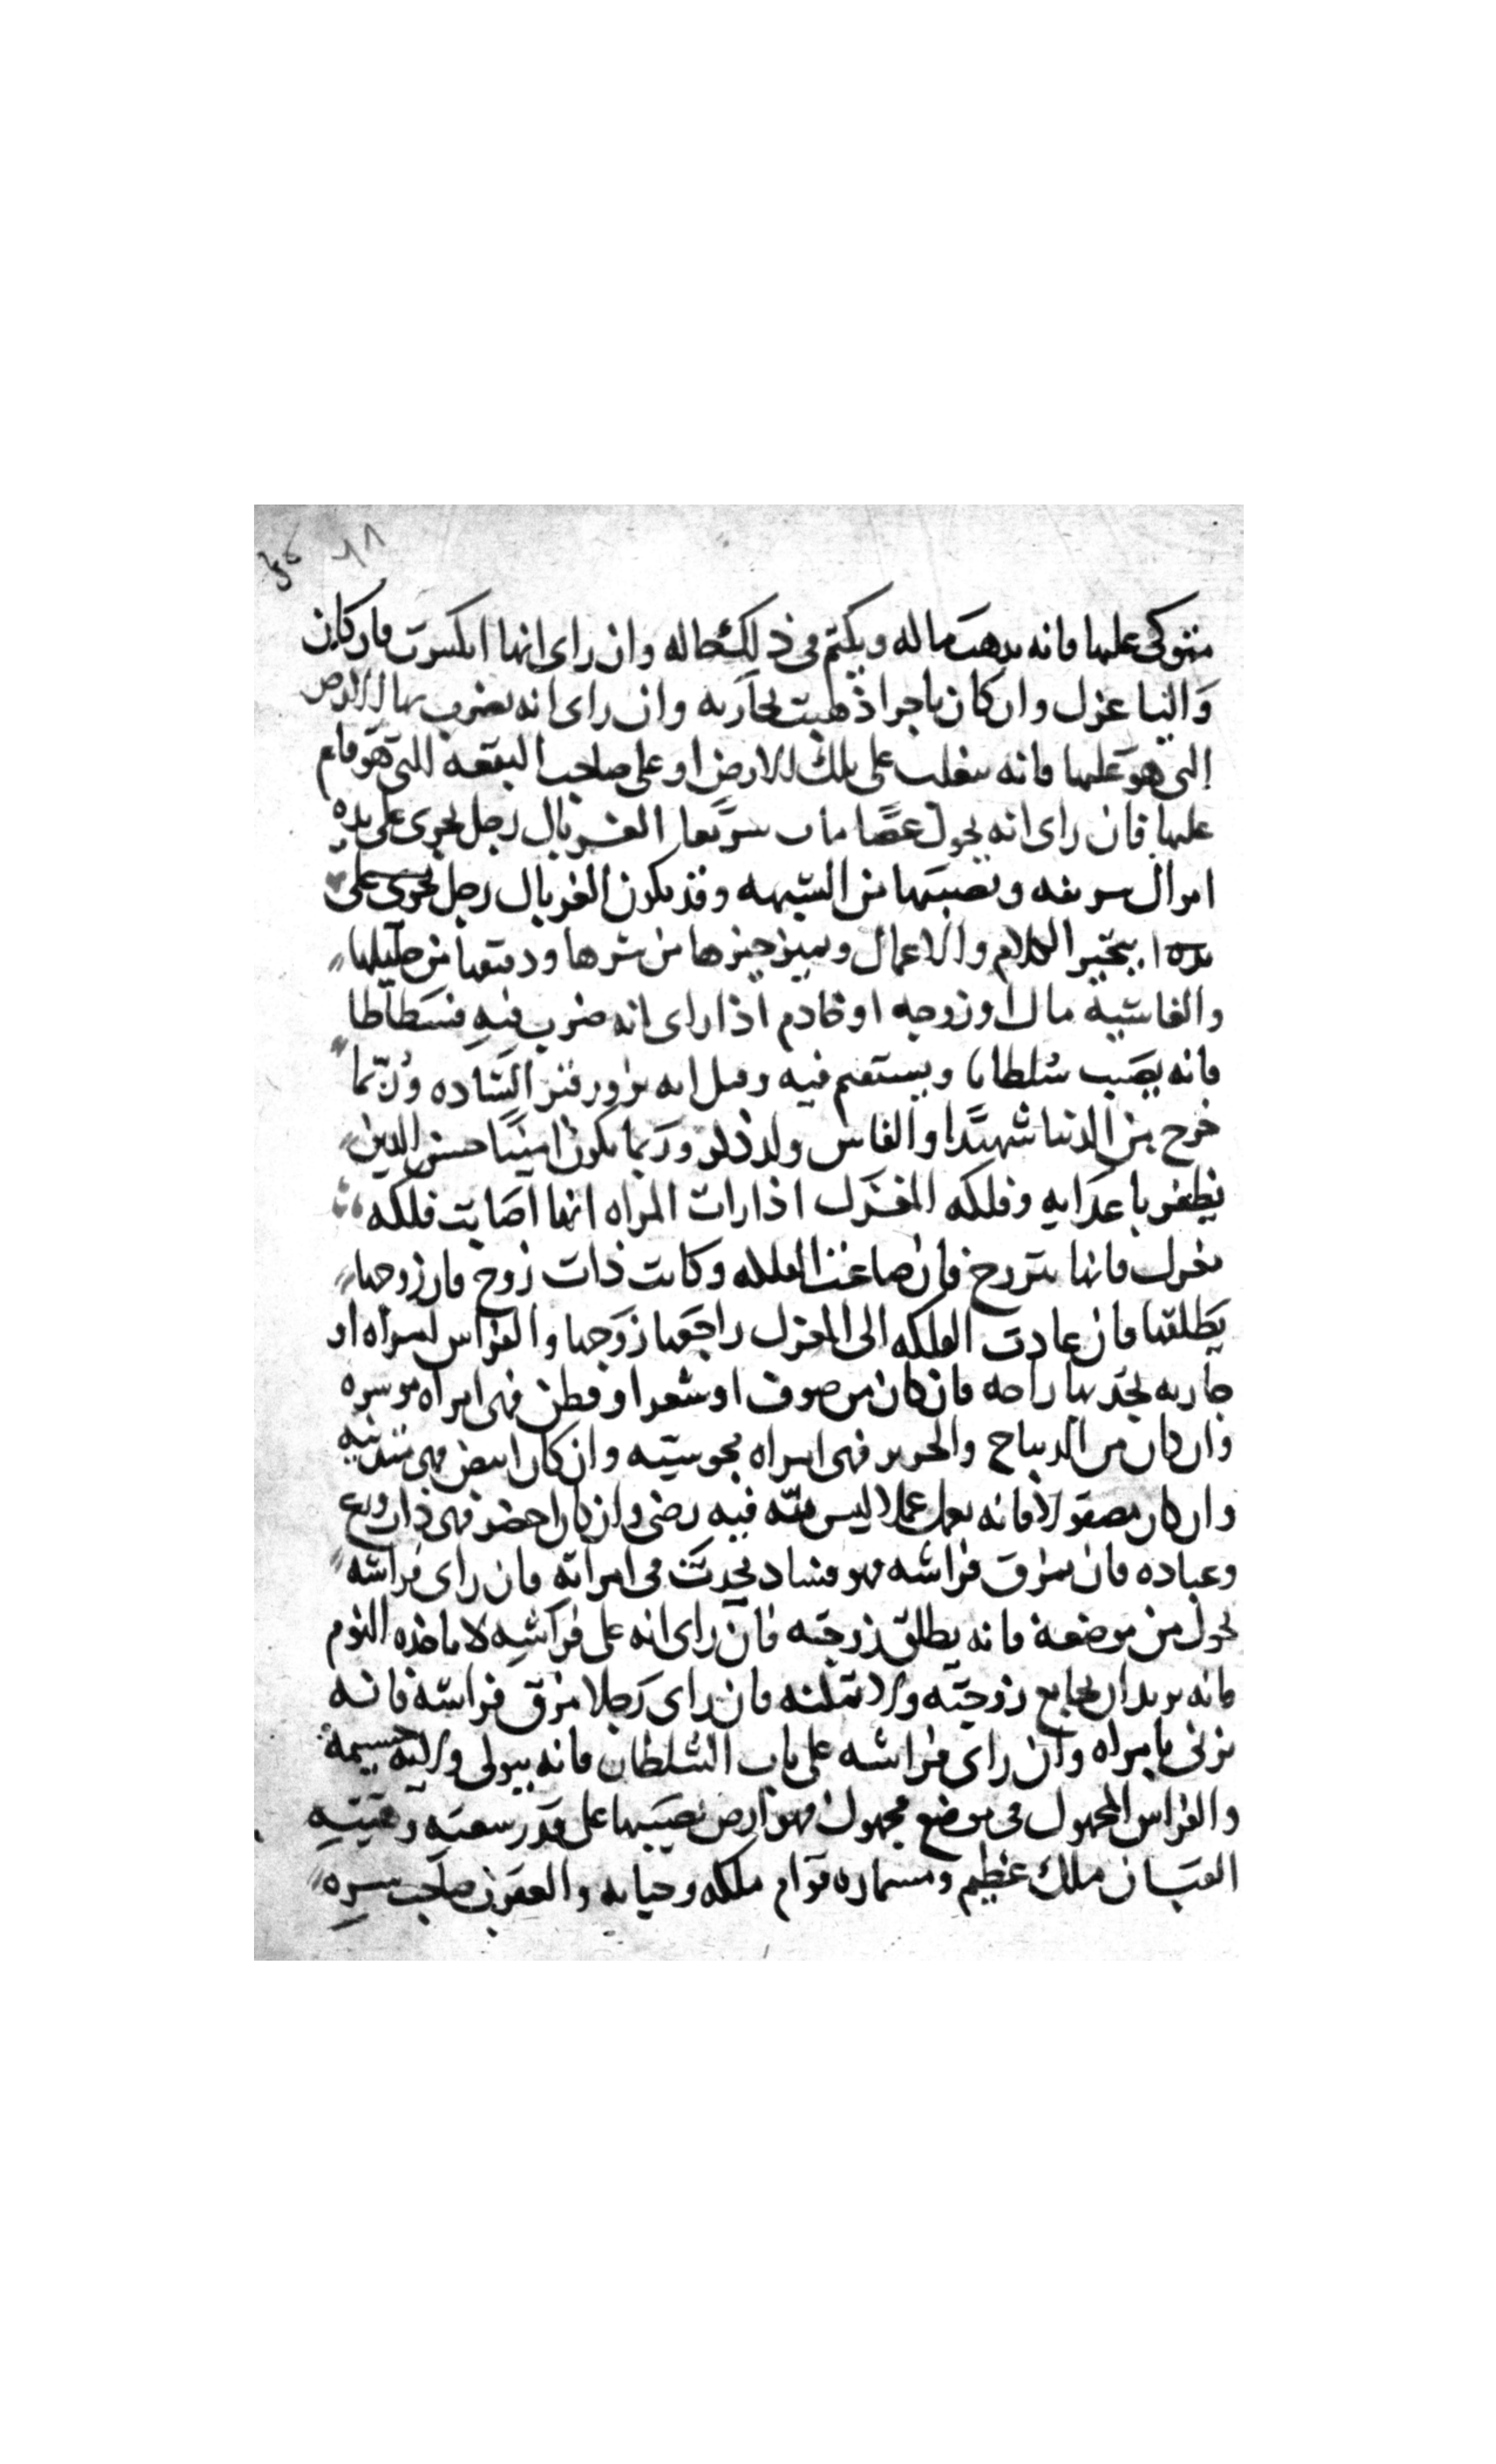 متوكى عليها فانه يذهب ماله ويكتم في ذلك حاله وان راى انها انكسرت فان كان
واليا عزل وان كان تاجرا ذهبت تجارته وان راى انه يضرب بها الارض
التي هو عليها فانه يتغلب على تلك الارض او على صاحب البقعه التي هو قايم
عليها فان راى انه يحول عصا مات سريعا الغربال رجل يجري على يده
اموال سريفه ونصيبها من الشبهه وقد يكون الغربال رجل يجري على
يده الكلام والاعمال ويميز خيرها من شرها ودقيقها من
والغاشية مال او زوجه او خادم اذا راى انه ضرب فيه فسطاطا
فانه يصيب سلطانا ويستقيم فيه وقيل انه يزور قبر الساده وربما
خرج من الدنيا شهيدا والفاس ولد ذكر وربما يكون امينا حسن الدين
يظفر باعدايه وفلكه المغزل اذا رات المراه انها اصابت فلكه
مغزل فانها تتزوج فان ضاعت الفلكه وكانت ذات زوج فان زوجها
يطلقها فان عادت الفلكه الى المغزل راجعها زوجها والفراش امراه او
جاريه يجد بها راحه فان كان من صوف او شعر او قطن فهي امراه موسره
وان كان من الديباج والحرير فهي امراه مجوسيه وان كان ابيض فهي متدينه
وان كان مصقولا فانه يعمل عملا ليس لله فيه رضى وان كان اخضر فهي ذات ورع
وعباده فان سرق فراشه فهو فساد يحدث في امراته فان راى فراشه
يحول من موضعه فانه يطلق زوجته فان راى انه على فراشه لا ياخذه النوم
فانه يريد ان يجامع زوجته ولا تمكنه فان راى رجلا مزق فراشه فانه
يزني بامراه وان راى فراشه على باب السلطان فانه يتولى ولايه جسيمه
والفراش المجهول في موضع مجهول فهو ارض نصيبها على قدر سعته وهيئته
القبان ملك عظيم ومسماره قوام ملكه وحياته والعقرب صاحب سره